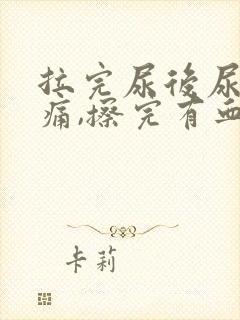 拉完尿後尿
痛,擦完有血
卡莉